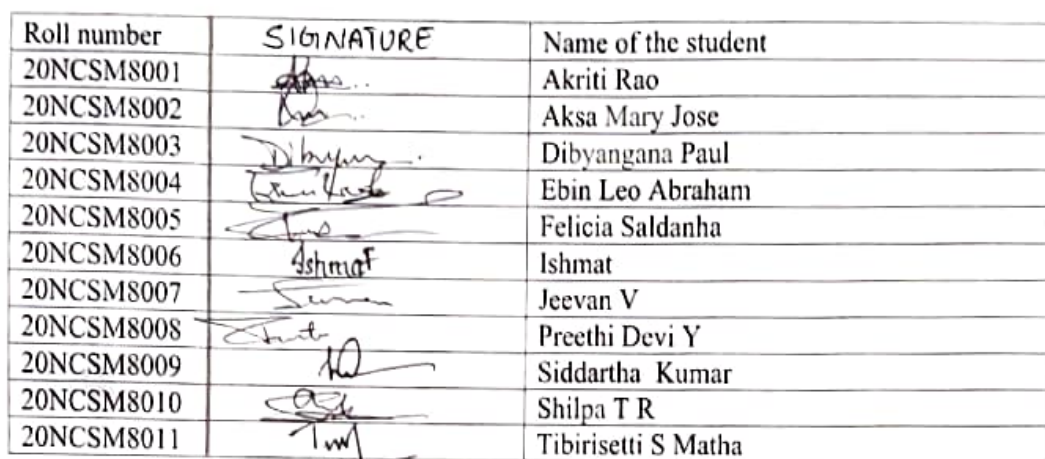 Roll number SIGNATURE Name of the student
20NCSM8001 Akriti Rao
20NCSM8002 Aksa Mary Jose
20NCSM8003 Dibyangana Paul
20NCSM8004 Ebin Leo Abraham
20NCSM8005 Felicia Saldanha
20NCSM8006 Ishmat Ishmat
20NCSM8007 Jeevan V
20NCSM8008 Preethi Devi Y
20NCSM8009 Siddartha Kumar
20NCSM8010 Shilpa T R
20NCSM8011 Tibirisetti S Matha